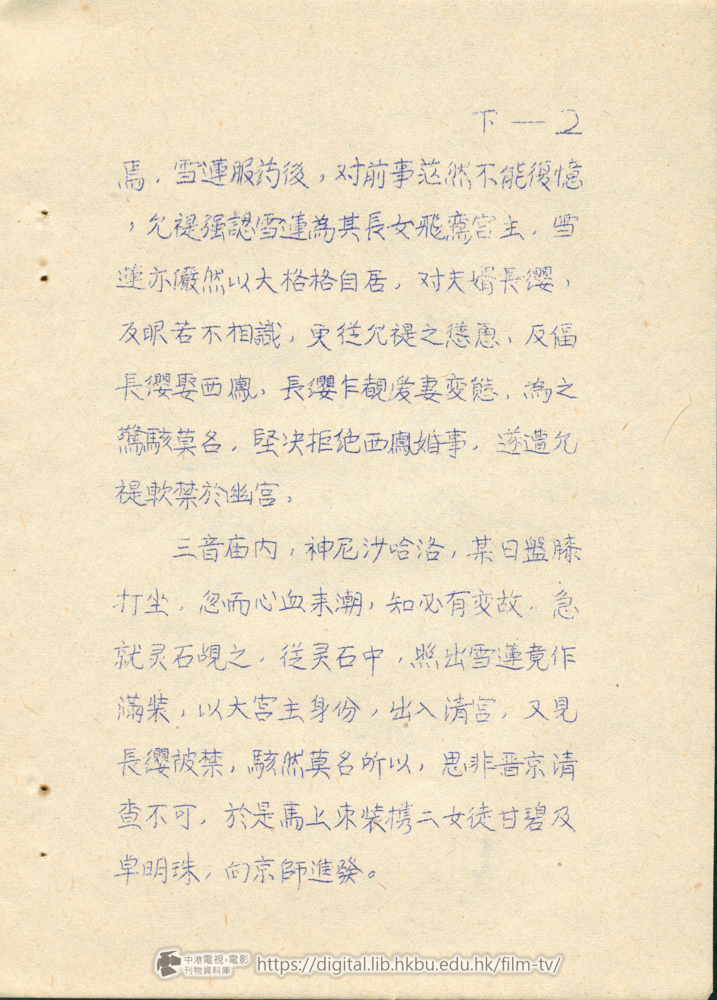 下—2
焉．雪蓮服药後，对前事茫然不能復憶
，允禔强認雪蓮為其長女飛鸞宮主．雪
蓮亦儼然以大格格自居，对夫婿長纓，
反眼若不相識，更從允禔之慫恿，反偪
長纓娶西鳳，長纓乍覩爱妻变態，為之
驚駭莫名，堅决拒绝西鳳婚事，遂遭允
禔軟禁於幽宫。
三音庙内，神尼沙哈洛，某日盤膝
打坐，忽而心血来潮，知必有变故．急
就灵石覘之，從灵石中，照出雪蓮竟作
滿裝，以大宫主身份，出入清宫，又見
長纓被禁，駭然莫名所以，思非晋京清
查不可，於是馬上束裝携二女徒甘碧及
卓明珠，向京師進發。
中港電視·電影
刊物資料庫
https://digital.lib.hkbu.edu.hk/film-tv/